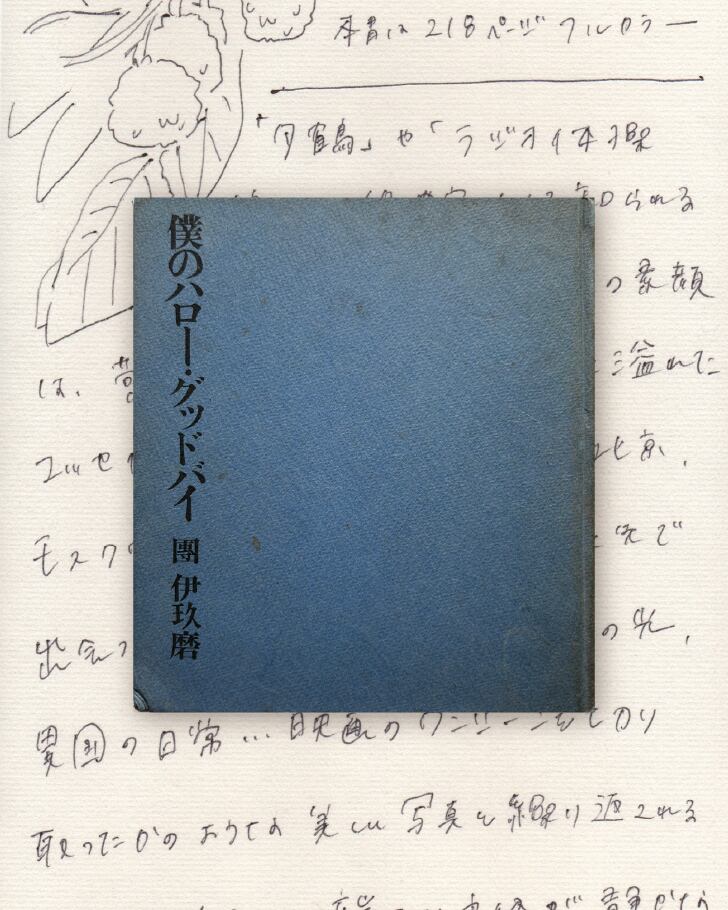 本書は218ページフルカラー
「夕鶴」や「ラジオ体操
知られる
の素顔
は、
に溢れた
エッセ
北京、
モスクワ
先で
出会っ
の光、
異国の日常…映画のワンシーンを切り
取ったかのような美しい写真と繰り返される
僕のハロー・グッドバイ
團 伊玖磨